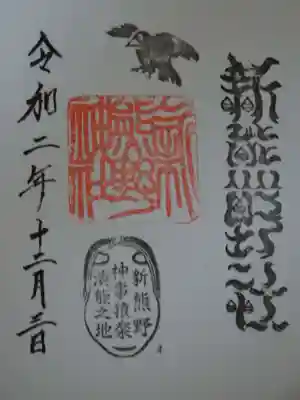 新
熊野
神社
新熊野
神事猿楽
演能之地
令和二年十二月三日